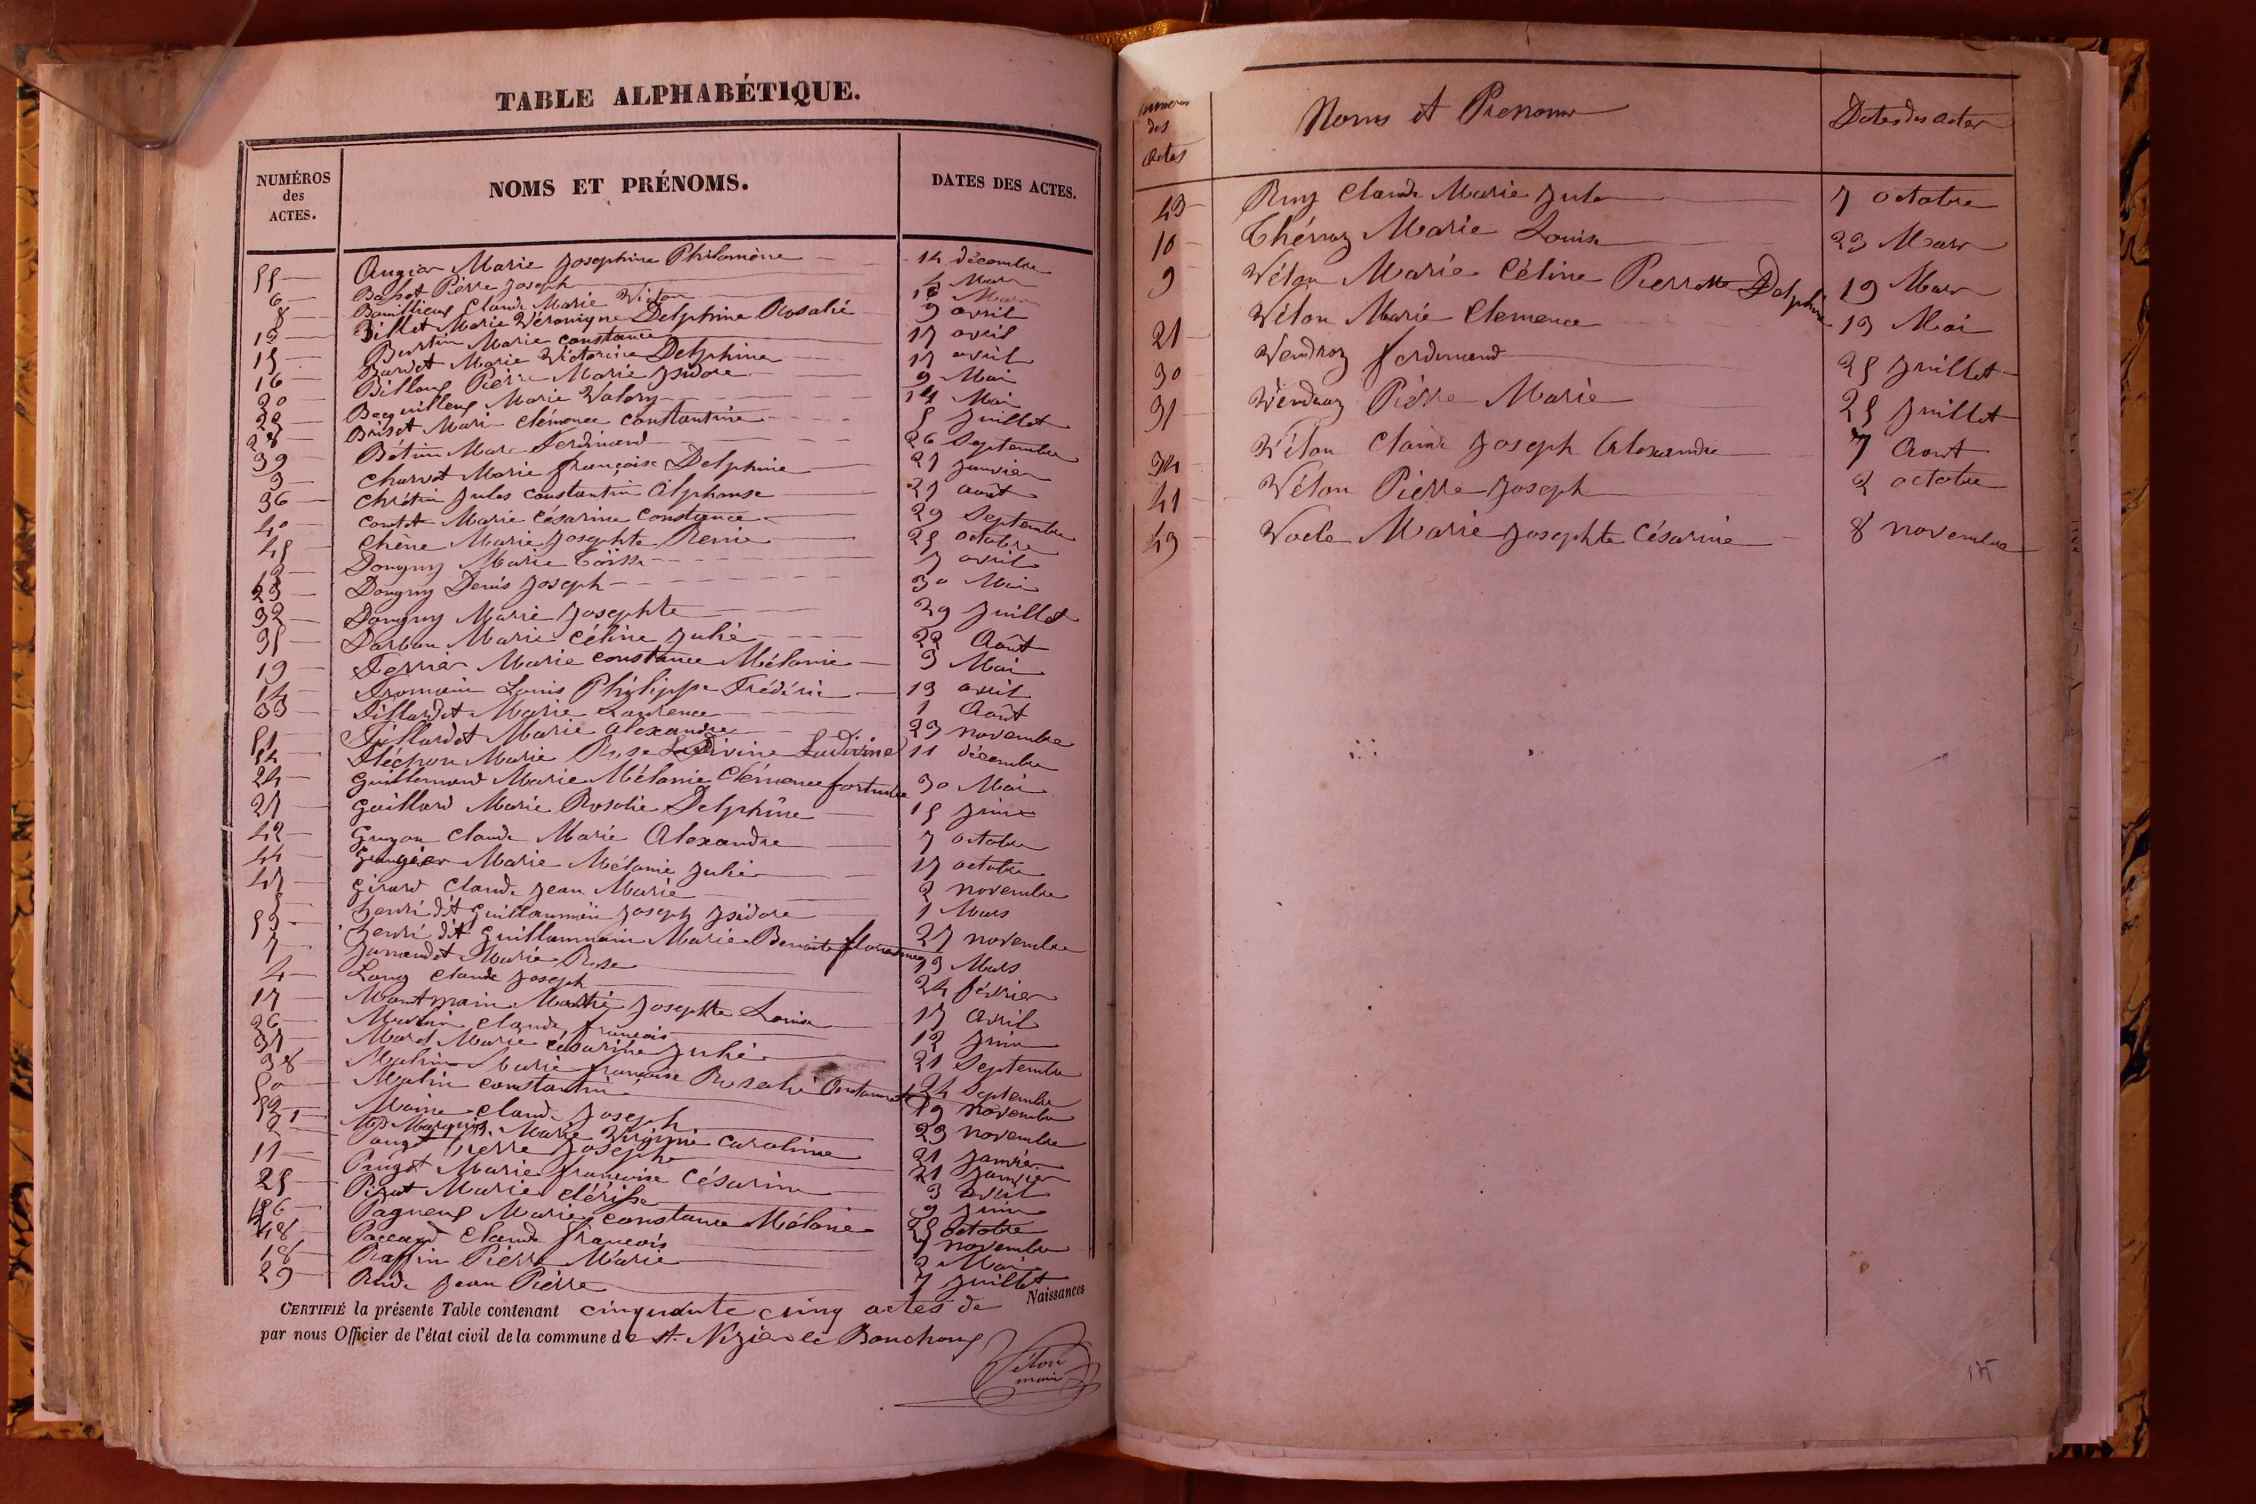 TABLE ALPHABÉTIQUE.
NUMÉROS des ACTES.
NOMS ET PRÉNOMS.
DATES DES ACTES.
55 Augier Marie Josephine Philomène 14 décembre
6 Pierre Joseph 4 Mars
8 Claude Marie Victor Mars
Billet Marie Véronique Delphine Rosalie 9 avril
15 Burtin Marie constance 17 avril
16 Bardet Marie Victorine Delphine 17 avril
20 Billoud Pierre Marie Isidore 9 Mai
Marie Valery 14 Mai
28 Brisot Marie clémence constantine 5 Juillet
39 Bétin Marc ferdinand 26 Septembre
3 charvet Marie françoise Delphine 21 Janvier
36 chrétin Jules constantin Alphonse 27 août
40 contet Marie césarine constance 29 Septembre
45 chêne Marie Josephte Renie 25 octobre
Donguy Marie 7 avril
23 Donguy Denis Joseph 30 Mai
32 Donguy Marie Josephte 29 Juillet
35 Darbon Marie céline Julie 22 Août
19 Ferrier Marie constance Mélanie 3 Mai
14 Fromain Louis Philippe Frédéric 13 avril
33 Fillardet Marie Laurence 1 Août
51 Fillardet Marie alexandrine 23 novembre
54 Fléchon Marie Rose Ludivine 11 décembre
24 Guillermard Marie Mélanie Clémence fortunée 30 Mai
27 Gaillard Marie Rosalie Delphine 15 Juin
42 Guyon claude Marie Alexandre 7 octobre
44 Marie Mélanie Julie 17 octobre
47 Girard Claude Jean Marie 2 novembre
5 henri dit Guillaumin Joseph Isidore 1 Mars
53 henri dit Guillaumain Marie Benoite 27 novembre
7 Marie Rose 13 Mars
4 Long Claude Joseph 24 février
17 Montmain Marie Josephte Louise 17 Avril
26 claude françois 12 Juin
37 Morel Marie césarine Julie 21 Septembre
38 Marie françoise Rosalie Antoinette 24 Septembre
50 constantin 19 novembre
52 claude Joseph 23 novembre
1 Marie Virginie caroline 21 Janvier
2 Pierre Joseph 21 Janvier
11 Marie françoise césarine 3 avril
25 Marie clérisse 9 Juin
46 Pagneux Marie constance Mélanie 25 octobre
48 Paccard claude françois 7 novembre
18 Raffin Pierre Marie 2 Mai
29 Rude Jean Pierre 7 Juillet
CERTIFIÉ la présente Table contenant cinquante cinq actes de Naissances
par nous Officier de l'état civil de la commune de St. Nizier le Bouchoux
Véton maire
numéros des actes
Noms et Prenoms
Dates des actes
43 Ruy claude Marie Jules 7 octobre
10 Thévenoz Marie Louise 23 Mars
9 Véton Marie Céline Pierrette Delphine 19 Mars
21 Véton Marie clemence 19 Mai
30 Vendroz ferdinand 25 Juillet
31 Vendroz Pierre Marie 25 Juillet
34 Véton claude Joseph Alexandre 7 Aout
41 Véton Pierre Joseph 2 octobre
49 Marie Josephte Césarine 8 novembre